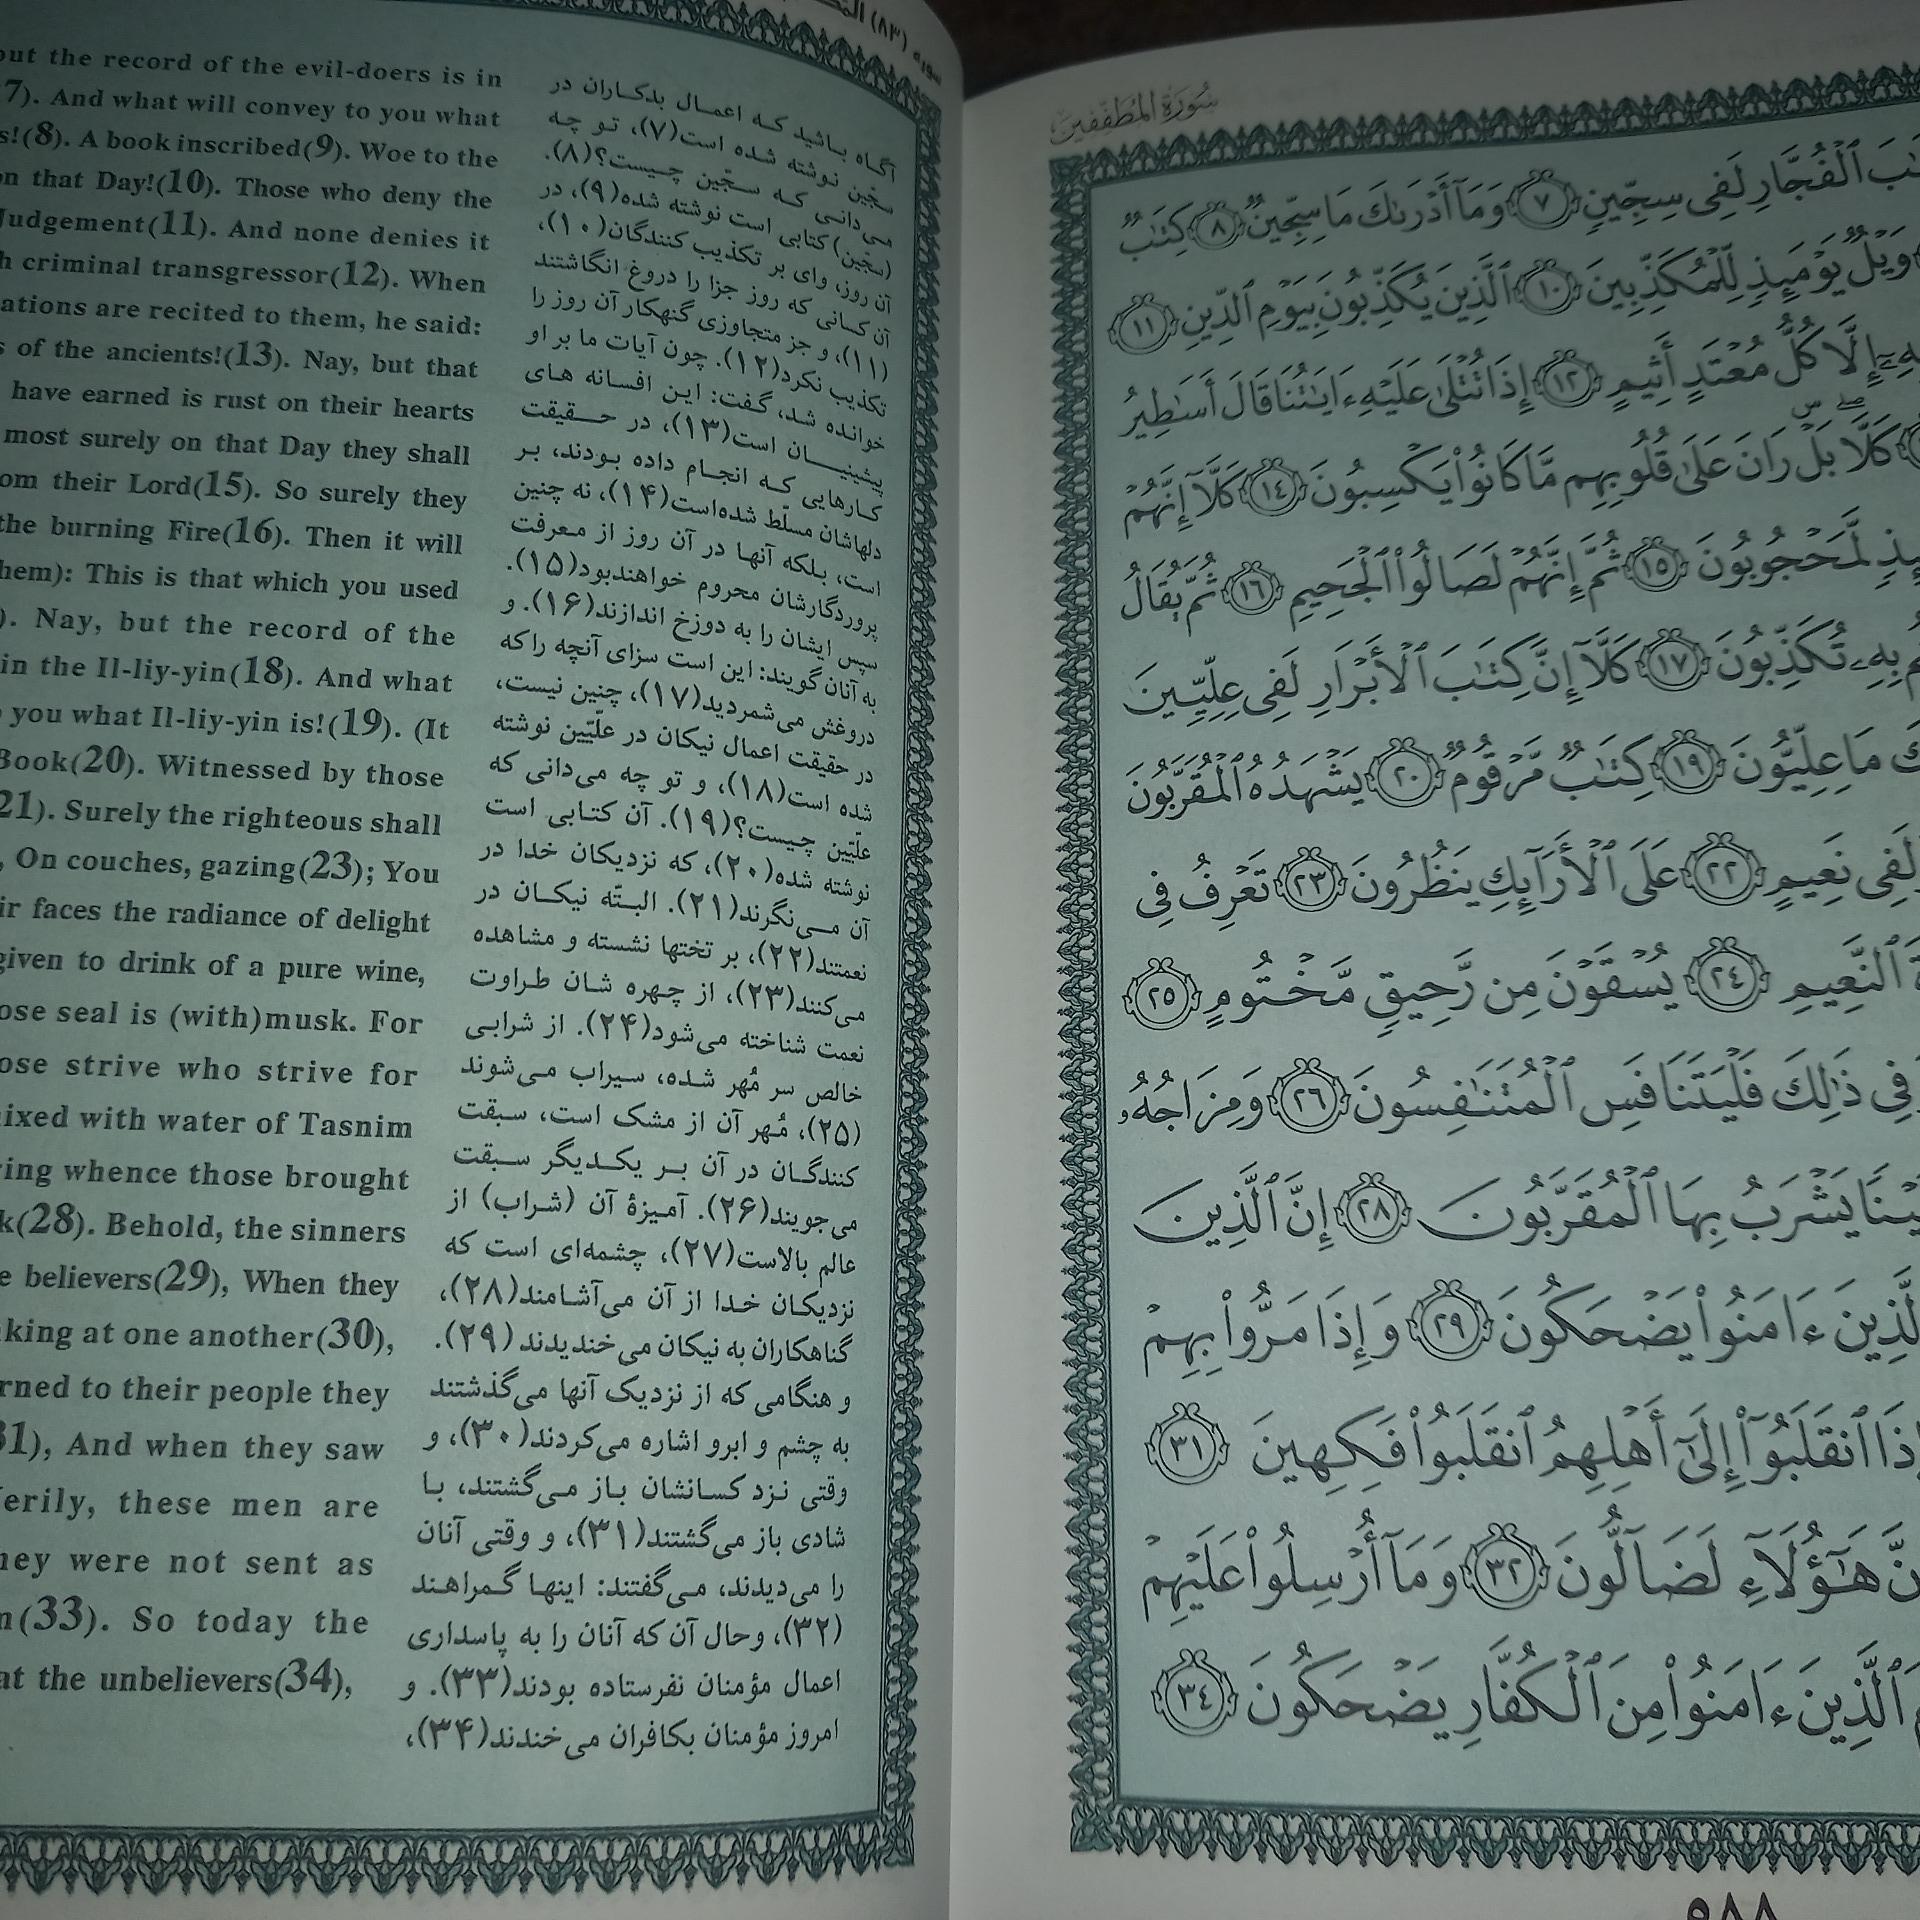 سوره (۸۳)
out the record of the evil-doers is in
7). And what will convey to you what
s!(8). A book inscribed(9). Woe to the
on that Day!(10). Those who deny the
Judgement(11). And none denies it
h criminal transgressor(12). When
ations are recited to them, he said:
s of the ancients!(13). Nay, but that
have earned is rust on their hearts
most surely on that Day they shall
om their Lord(15). So surely they
the burning Fire(16). Then it will
hem): This is that which you used
). Nay, but the record of the
in the Il-liy-yin(18). And what
you what Il-liy-yin is!(19). (It
Book(20). Witnessed by those
21). Surely the righteous shall
, On couches, gazing(23); You
ir faces the radiance of delight
given to drink of a pure wine,
ose seal is (with)musk. For
ose strive who strive for
ixed with water of Tasnim
ring whence those brought
k(28). Behold, the sinners
e believers(29), When they
king at one another(30),
rned to their people they
31), And when they saw
Verily, these men are
hey were not sent as
n(33). So today the
at the unbelievers(34),
آگاه باشید که اعمال بدکاران در
سجّین نوشته شده است(۷)، تو چه
می‌دانی که سجّین چیست؟(۸).
(سجّین) کتابی است نوشته شده(۹)، در
آن روز، وای بر تکذیب کنندگان(۱۰)،
آن کسانی که روز جزا را دروغ انگاشتند
(۱۱)، و جز متجاوزی گنهکار آن روز را
تکذیب نکرد(۱۲). چون آیات ما بر او
خوانده شد، گفت: این افسانه های
پیشینیان است(۱۳)، در حقیقت
کارهایی که انجام داده بودند، بر
دلهاشان مسلّط شده‌است(۱۴)، نه چنین
است، بلکه آنها در آن روز از معرفت
پروردگارشان محروم خواهندبود(۱۵).
سپس ایشان را به دوزخ اندازند(۱۶). و
به آنان گویند: این است سزای آنچه را که
دروغش می‌شمردید(۱۷)، چنین نیست،
در حقیقت اعمال نیکان در علیّین نوشته
شده است(۱۸)، و تو چه می‌دانی که
علیّین چیست؟(۱۹). آن کتابی است
نوشته شده(۲۰)، که نزدیکان خدا در
آن می‌نگرند(۲۱). البتّه نیکان در
نعمتند(۲۲)، بر تختها نشسته و مشاهده
می‌کنند(۲۳)، از چهره شان طراوت
نعمت شناخته می‌شود(۲۴). از شرابی
خالص سر مُهر شده، سیراب می‌شوند
(۲۵)، مُهر آن از مشک است، سبقت
کنندگان در آن بر یکدیگر سبقت
می‌جویند(۲۶). آمیزهٔ آن (شراب) از
عالم بالاست(۲۷)، چشمه‌ای است که
نزدیکان خدا از آن می‌آشامند(۲۸)،
گناهکاران به نیکان می‌خندیدند (۲۹).
و هنگامی که از نزدیک آنها می‌گذشتند
به چشم و ابرو اشاره می‌کردند(۳۰)، و
وقتی نزد کسانشان باز می‌گشتند، با
شادی باز می‌گشتند(۳۱)، و وقتی آنان
را می‌دیدند، می‌گفتند: اینها گمراهند
(۳۲)، وحال آن که آنان را به پاسداری
اعمال مؤمنان نفرستاده بودند(۳۳). و
امروز مؤمنان بکافران می‌خندند(۳۴)،
سُورَةُ المُطَفِّفِين
ٱلْفُجَّارِ لَفِى سِجِّينٍ ٧ وَمَآ أَدْرَىٰكَ مَا سِجِّينٌ ٨ كِتَٰبٌ
وَيْلٌ يَوْمَئِذٍ لِّلْمُكَذِّبِينَ ١٠ ٱلَّذِينَ يُكَذِّبُونَ بِيَوْمِ ٱلدِّينِ ١١
إِلَّا كُلُّ مُعْتَدٍ أَثِيمٍ ١٢ إِذَا تُتْلَىٰ عَلَيْهِ ءَايَٰتُنَا قَالَ أَسَٰطِيرُ
كَلَّا بَلْ رَانَ عَلَىٰ قُلُوبِهِم مَّا كَانُوا۟ يَكْسِبُونَ ١٤ كَلَّآ إِنَّهُمْ
لَّمَحْجُوبُونَ ١٥ ثُمَّ إِنَّهُمْ لَصَالُوا۟ ٱلْجَحِيمِ ١٦ ثُمَّ يُقَالُ
بِهِۦ تُكَذِّبُونَ ١٧ كَلَّآ إِنَّ كِتَٰبَ ٱلْأَبْرَارِ لَفِى عِلِّيِّينَ
مَا عِلِّيُّونَ ١٩ كِتَٰبٌ مَّرْقُومٌ ٢٠ يَشْهَدُهُ ٱلْمُقَرَّبُونَ
لَفِى نَعِيمٍ ٢٢ عَلَى ٱلْأَرَآئِكِ يَنظُرُونَ ٢٣ تَعْرِفُ فِى
ٱلنَّعِيمِ ٢٤ يُسْقَوْنَ مِن رَّحِيقٍ مَّخْتُومٍ ٢٥
فِى ذَٰلِكَ فَلْيَتَنَافَسِ ٱلْمُتَنَٰفِسُونَ ٢٦ وَمِزَاجُهُۥ
يَشْرَبُ بِهَا ٱلْمُقَرَّبُونَ ٢٨ إِنَّ ٱلَّذِينَ
ٱلَّذِينَ ءَامَنُوا۟ يَضْحَكُونَ ٢٩ وَإِذَا مَرُّوا۟ بِهِمْ
ٱنقَلَبُوٓا۟ إِلَىٰٓ أَهْلِهِمُ ٱنقَلَبُوا۟ فَكِهِينَ ٣١
هَٰٓؤُلَآءِ لَضَآلُّونَ ٣٢ وَمَآ أُرْسِلُوا۟ عَلَيْهِمْ
ٱلَّذِينَ ءَامَنُوا۟ مِنَ ٱلْكُفَّارِ يَضْحَكُونَ ٣٤
٥٨٨